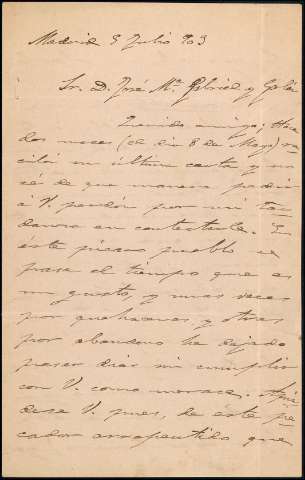 Madrid 5 Julio 903
Sr. D. José Mª Gabriel y Galán
Querido amigo; Hace
dos meses (el dia 8 de Mayo) re-
cibí su última carta y no
sé de que manera pedir
á V. perdón por mi tar-
danza en contestarle. En
este pícaro pueblo se
pasa el tiempo que es
un gusto, y unas veces
por quehaceres y otras
por abandono he dejado
pasar dias sin cumplir
con V. como merece. Apiá-
dese V. pues, de este pe-
cador arrepentido que